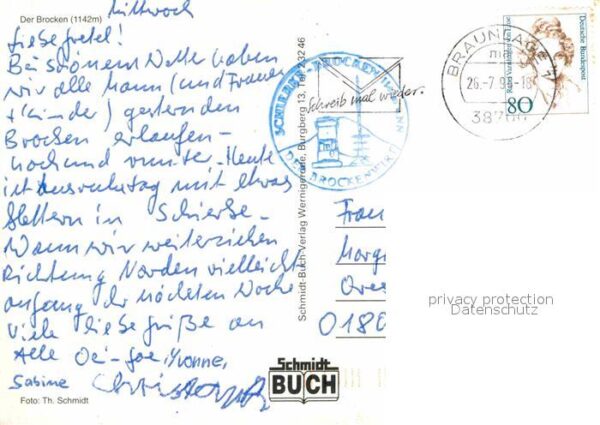 Der Brocken (1142m)
Mittwoch
Liebe Gretel!
Bei schönem Wetter haben
wir alle Mann (und Frauen
+ Kinder) gestern den
Brocken erlaufen -
hoch und runter. Heute
ist Ausruhetag mit etwas
Klettern in Schierke.
Wann wir weiterziehen
Richtung Norden vielleicht
anfang der nächsten Woche
Viele liebe Grüße an
Alle
Yvonne,
Sabine
Foto: Th. Schmidt
Schmidt-Buch-Verlag Wernigerode, Burgberg 13, Tel. 232 46
Schmidt
BUCH
SCHIERKE-BROCKEN
DER BROCKENWIRT
Schreib mal wieder.
BRAUNLAGE 1
26.-7.9 -18
38700
Deutsche Bundespost
80
Frau
O180
privacy protection
Datenschutz